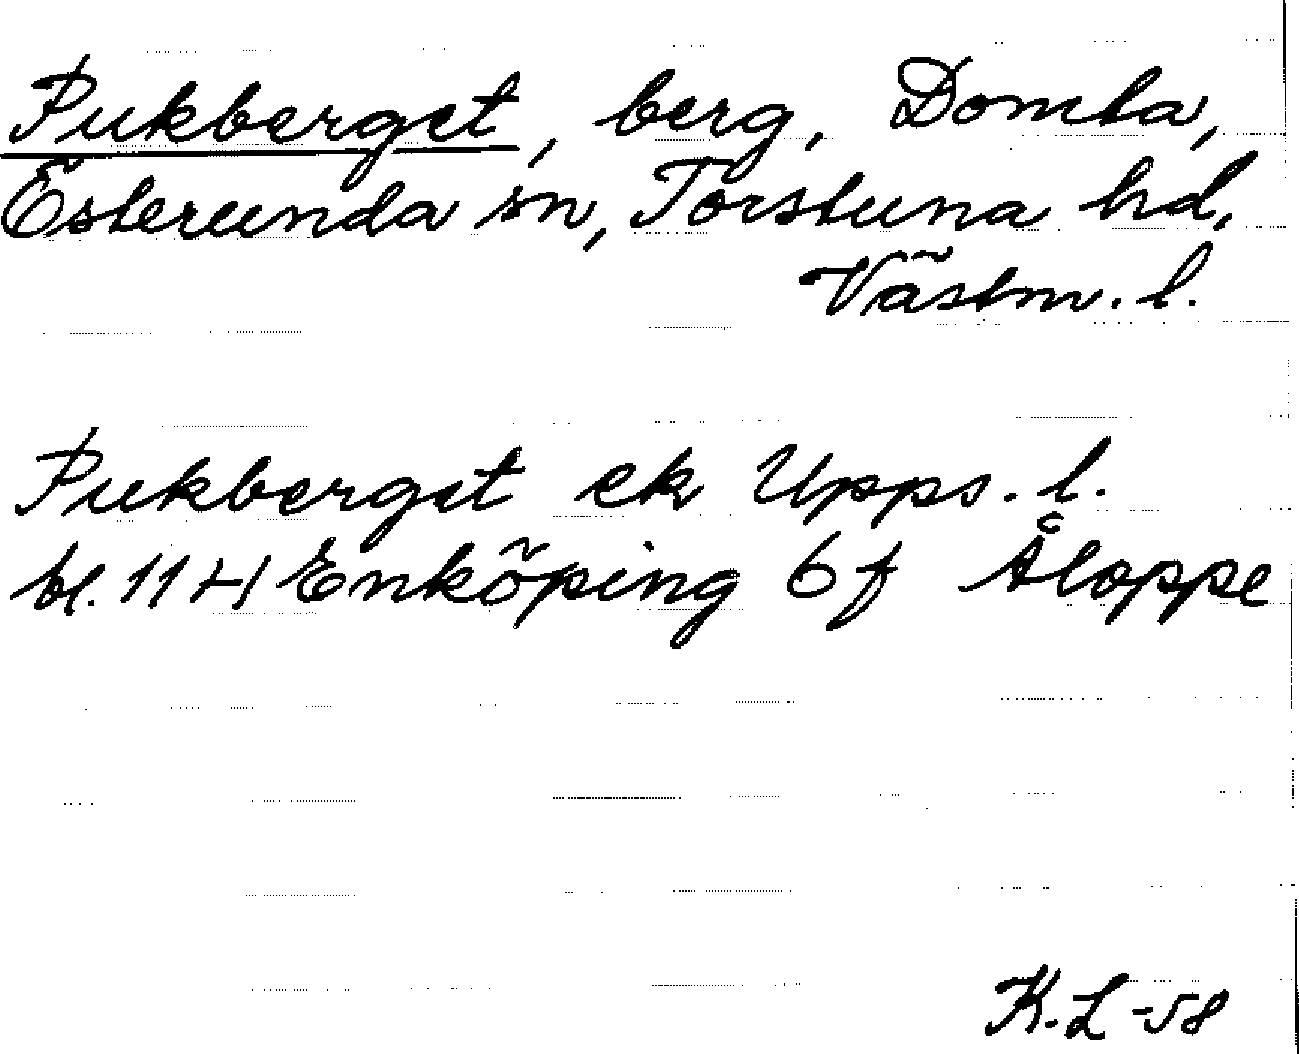 Pukberget, berg, Domta,
Österunda sn, Torstuna hd,
Västm. l.
Pukberget ek Upps. l.
bl. 11 H Enköping 6 f Åloppe
K. L -58